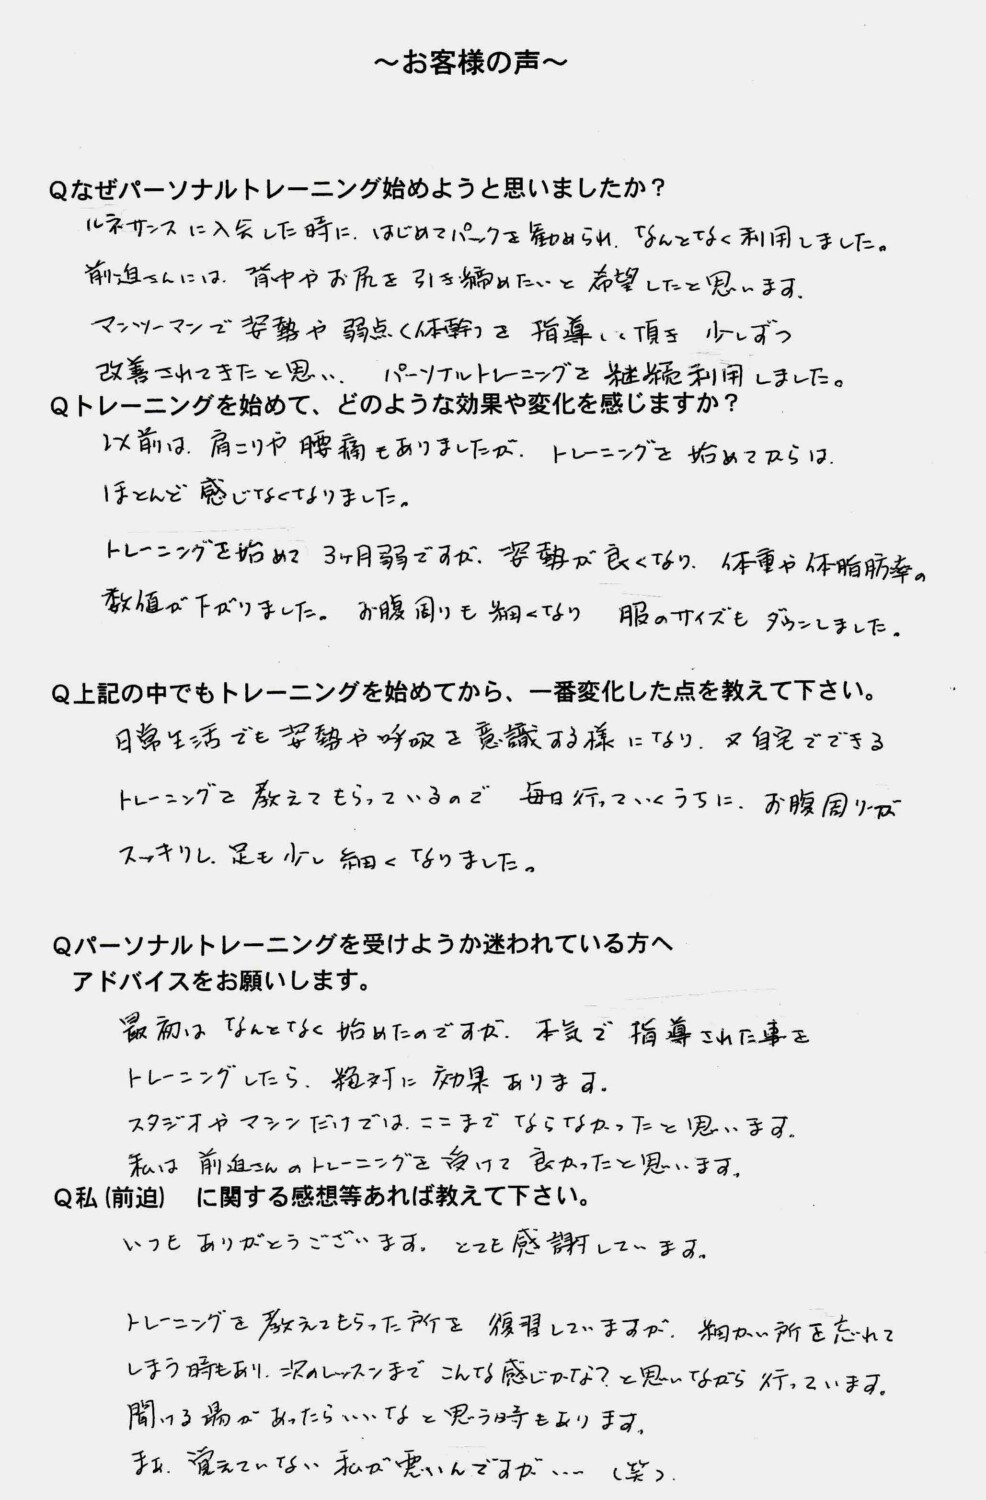 ～お客様の声～
Qなぜパーソナルトレーニング始めようと思いましたか？
ルネサンスに入会した時に、はじめてパックを勧められ、なんとなく利用しました。
前迫さんには、背中やお尻を引き締めたいと希望したと思います。
マンツーマンで姿勢や弱点(体幹)を指導して頂き少しずつ
改善されてきたと思い、パーソナルトレーニングを継続利用しました。
Qトレーニングを始めて、どのような効果や変化を感じますか？
以前は、肩こりや腰痛もありましたが、トレーニングを始めてからは、
ほとんど感じなくなりました。
トレーニングを始めて3ヶ月弱ですが、姿勢が良くなり、体重や体脂肪率の
数値が下がりました。お腹周りも細くなり服のサイズもダウンしました。
Q上記の中でもトレーニングを始めてから、一番変化した点を教えて下さい。
日常生活でも姿勢や呼吸を意識する様になり、又自宅でできる
トレーニングを教えてもらっているので毎日行っていくうちに、お腹周りが
スッキリし、足も少し細くなりました。
Qパーソナルトレーニングを受けようか迷われている方へ
アドバイスをお願いします。
最初はなんとなく始めたのですが、本気で指導された事を
トレーニングしたら、絶対に効果あります。
スタジオやマシンだけでは、ここまでならなかったと思います。
私は前迫さんのトレーニングを受けて良かったと思います。
Q私(前迫)　に関する感想等あれば教えて下さい。
いつもありがとうございます。とても感謝しています。
トレーニングを教えてもらった所を復習していますが、細かい所を忘れて
しまう時もあり、次のレッスンまでこんな感じかな？と思いながら行っています。
聞ける場があったらいいなと思う時もあります。
まあ、覚えていない私が悪いんですが…(笑)。